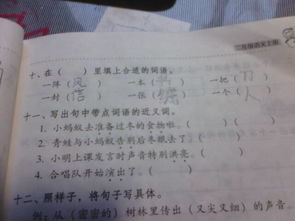 二年级语文上册
十、在（ ）里填上合适的词语。
一阵（风） 一本（书） 一把（刀）
一封（信） 一张（纸） 一个（人）
十一、写出句中带点词语的近义词。
1. 小蚂蚁去准备过冬的食物啦。（ ）
2. 青蛙与小蚂蚁告别后冬眠去了。（ ）
3. 小明上课发言时声音特别洪亮。（ ）
4. 合唱队开始演出了。（ ）
十二、照样子，将句子写具体。
例：从（密密的）树林里传出（又尖又细）的声音。